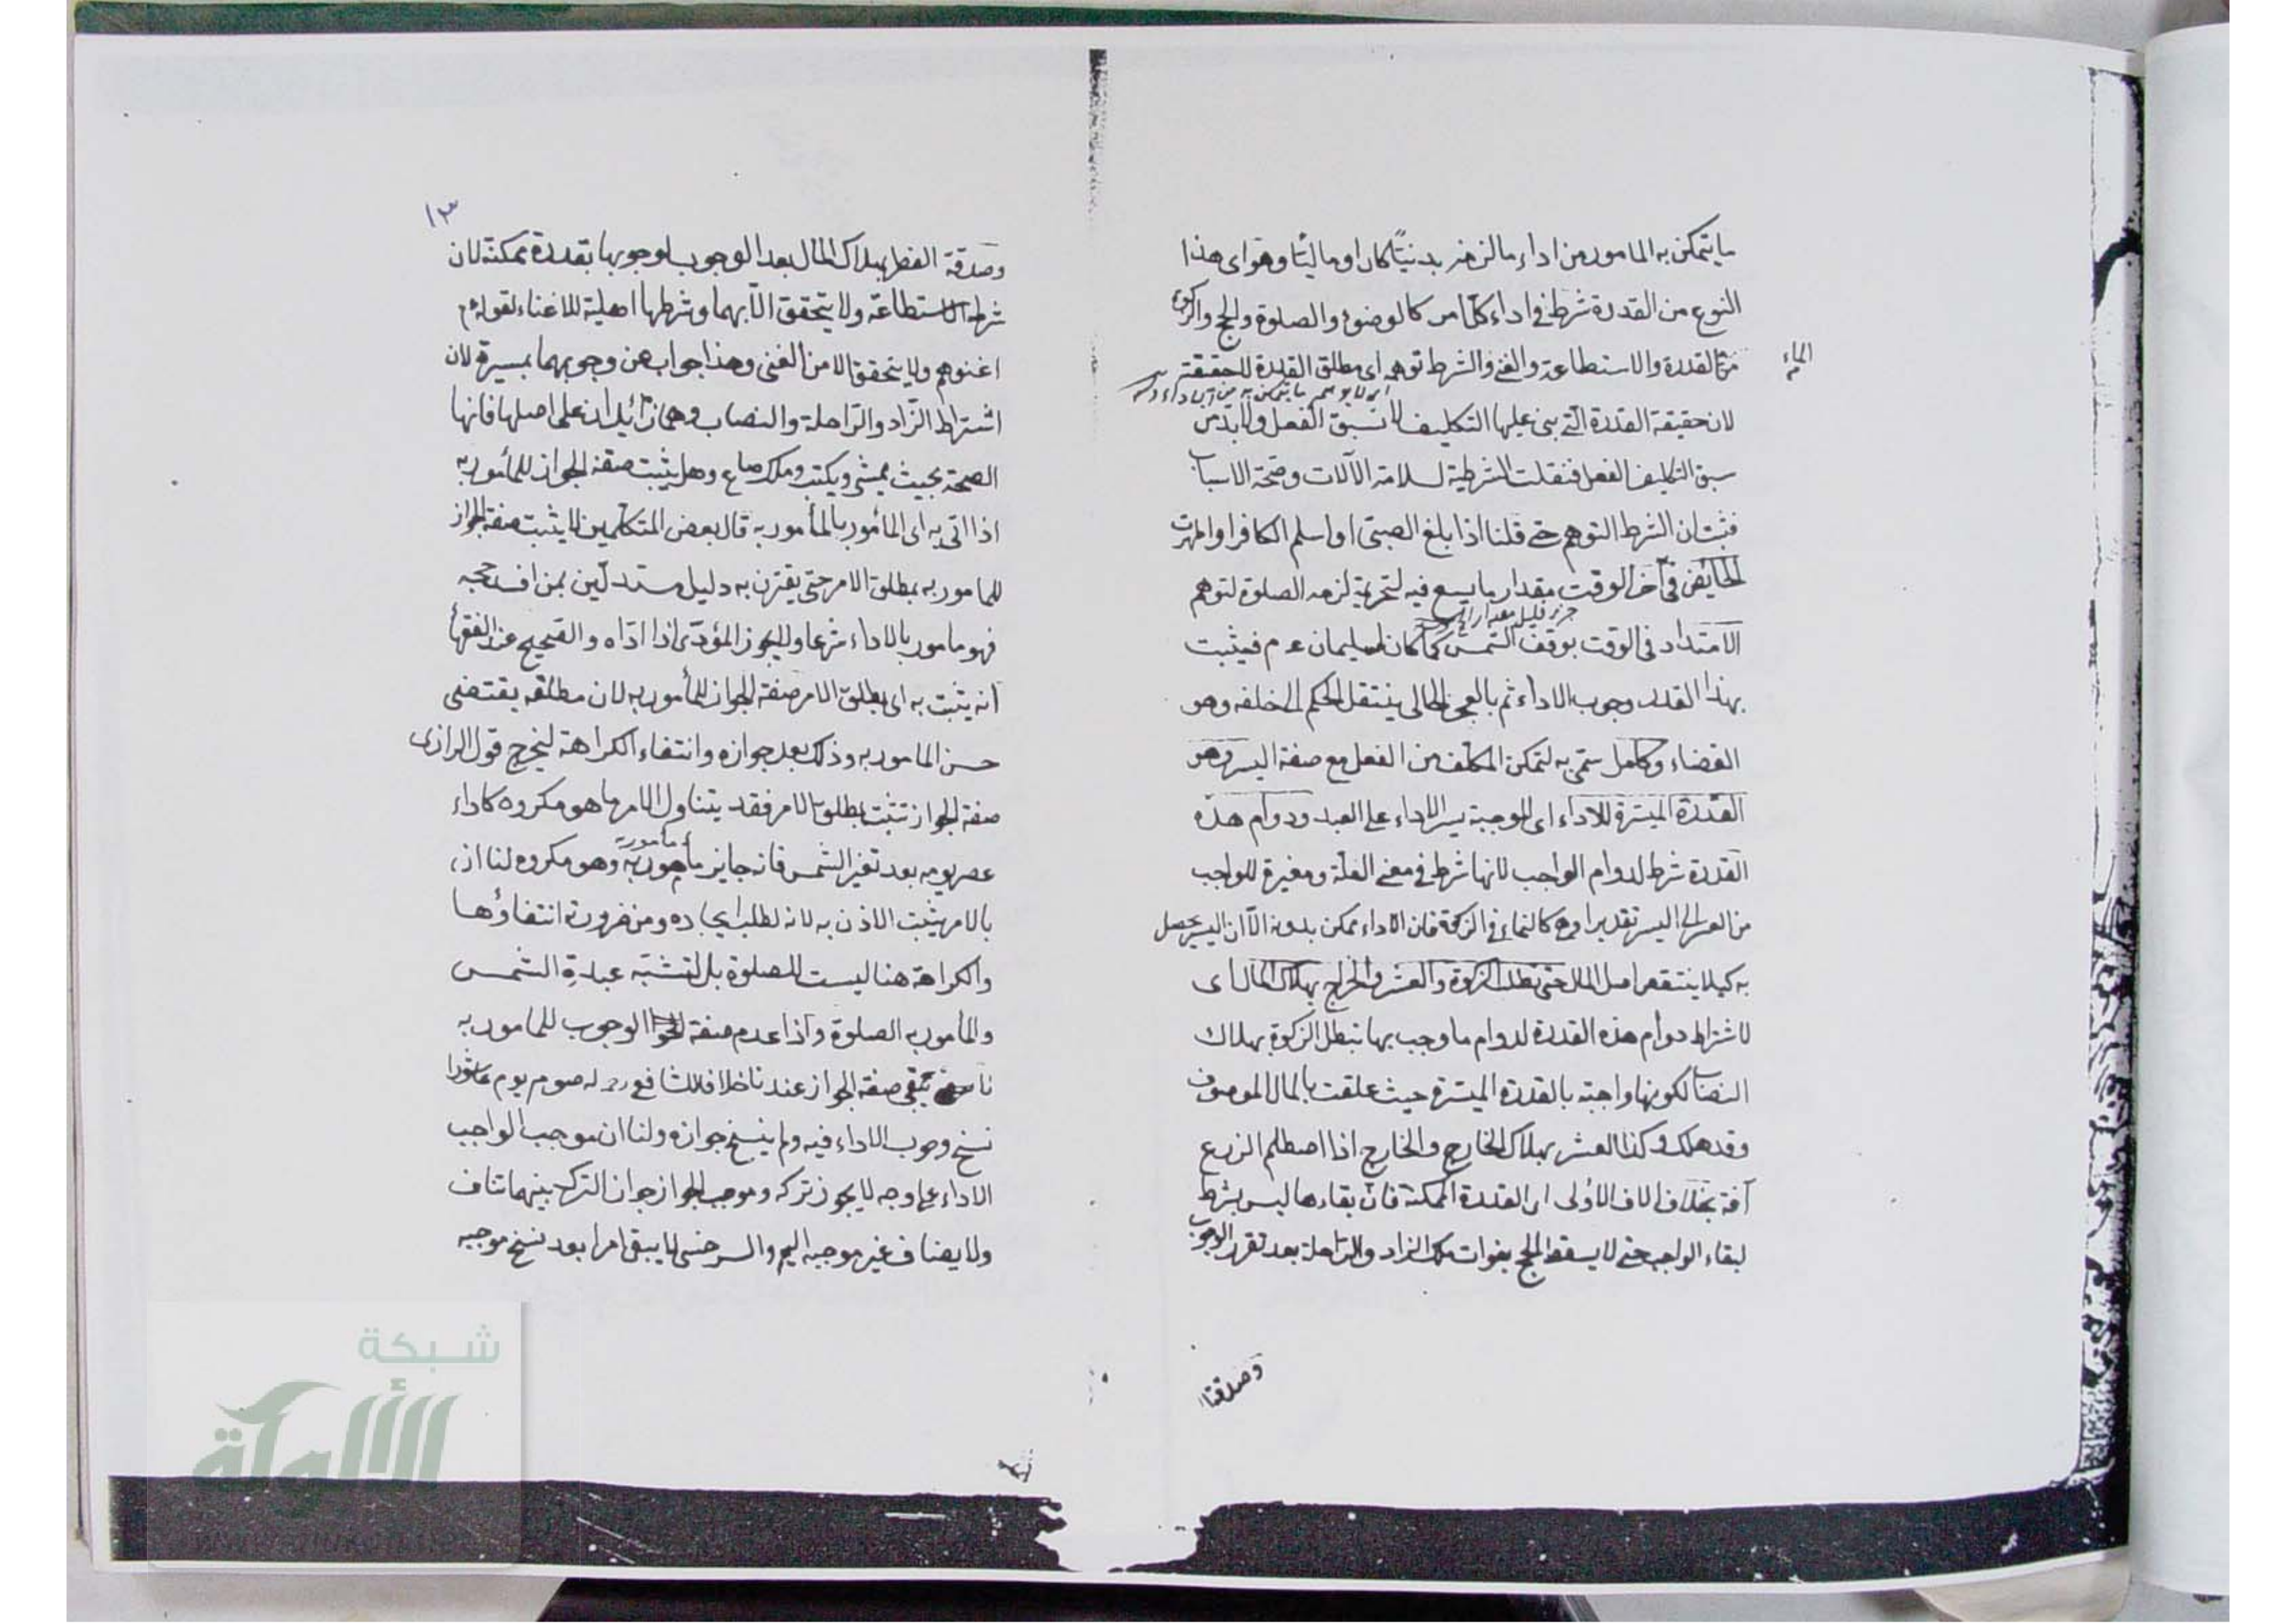 ما يتمكن به المامور من اداء ما لزمه بدنيّا كان او ماليّا وهو اى هذا
النوع من القدرة شرط فى اداء كل امر كالوضوء والصلوة والحج والزكوة
من القدرة والاستطاعة والغنى والشرط توهمه اى مطلق القدرة لا حقيقته
الماء
لان حقيقة القدرة التى بنى عليها التكليف لا تسبق الفعل ولا بد من
سبق التكليف الفعل فنقلت الشرطية لسلامة الآلات وصحة الاسباب
فثبت ان الشرط التوهم حتى قلنا اذا بلغ الصبى او اسلم الكافر او طهرت
الحايض فى آخر الوقت مقدار ما يسع فيه التحريمة لزمه الصلوة لتوهم
الامتداد فى الوقت بوقف الشمس كما كان لسليمان عم فيثبت
بهذا القدر وجوب الاداء ثم بالعجز الحالى ينتقل الحكم الى خلفه وهو
القضاء وكامل سمّى به لتمكن المكلف من الفعل مع صفة اليسر وهو
القدرة الميسّرة للاداء اى الموجبة يسر الاداء على العبد ودوام هذه
القدرة شرط لدوام الواجب لانها شرط فى معنى العلّة ومغيرة للواجب
من العسر الى اليسر تقديرا وهى كالنماء فى الزكوة فان الاداء ممكن بدونه الّا ان اليسر يحصل
به كيلا ينتقص اصل المال حتى تبطل الزكوة والعشر والخراج بهلاك المال اى
لاشتراط دوام هذه القدرة لدوام ما وجب بها تبطل الزكوة بهلاك
النصاب لكونها واجبة بالقدرة الميسّرة حيث علقت بالمال الموصوف
وقد هلك وكذا العشر بهلاك الخارج والخارج اذا اصطلم الزرع
آفة بخلاف الاولى اى القدرة الممكنة فان بقاءها ليس بشرط
لبقاء الواجب حتى لا يسقط الحج بفوات ملك الزاد والراحلة بعد تقرر الوجوب
وصدقة
١٣
وصدقة الفطر بهلاك المال بعد الوجوب لوجوبها بقدرة ممكنة لان
شرطه الاستطاعة ولا يتحقق الّا بهما وشرطها اهلية للاغناء لقوله م
اغنوهم ولا يتحقق الا من الغنى وهذا جواب عن وجوبهما بميسرة لان
اشتراط الزاد والراحلة والنصاب وهما زائدان على اصلها فانها
الصحة بحيث يمشى ويكتب وملك صاع وهل يثبت صفة الجواز للمأمور به
اذا اتى به اى المأمور بالمأمور به قال بعض المتكلمين لا يثبت صفة الجواز
للمامور به بمطلق الامر حتى يقترن به دليل مستدلّين بمن افسد حجه
فهو مامور بالاداء شرعا ولا يجوز المؤدّى اذا ادّاه والصحيح عند الفقهاء
انه يثبت به اى بمطلق الامر صفة الجواز للمأمور به لان مطلقه يقتضى
حسن المامور به وذلك بعد جوازه وانتفاء الكراهة ليخرج قول الرازى
صفة الجواز تثبت بمطلق الامر فقد يتناول الامر ما هو مكروه كاداء
عصر يومه بعد تغير الشمس فانه جايز مأمور به وهو مكروه لنا ان
مأمور به
بالامر يثبت الاذن به لانه لطلب ايجاده ومن ضرورته انتفاؤها
والكراهة هنا ليست للصلوة بل لتشبّه عبدة الشمس
والمأمور به الصلوة واذا عدم صفة الوجوب للمامور به
تبقى صفة الجواز عندنا خلافا للشافعى رح له صوم يوم عاشورا
نسخ وجوب الاداء فيه ولم ينسخ جوازه ولنا ان موجب الواجب
الاداء على وجه لا يجوز تركه وموجب الجواز جواز الترك بينهما تناف
ولا يضاف غير موجبه اليه والسرخسى لا يبقى امرا بعد نسخ موجبه
شبكة
الألوكة